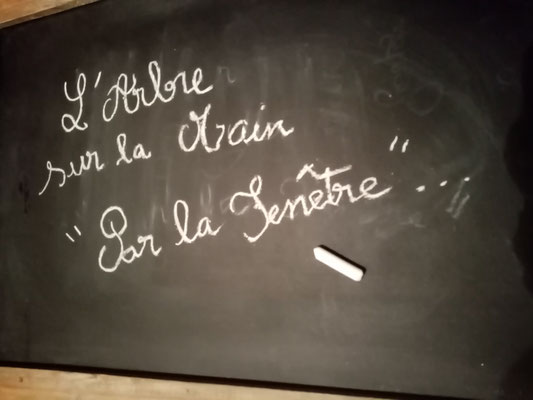 L'Arbre
sur la Main
"Par la Fenêtre"...